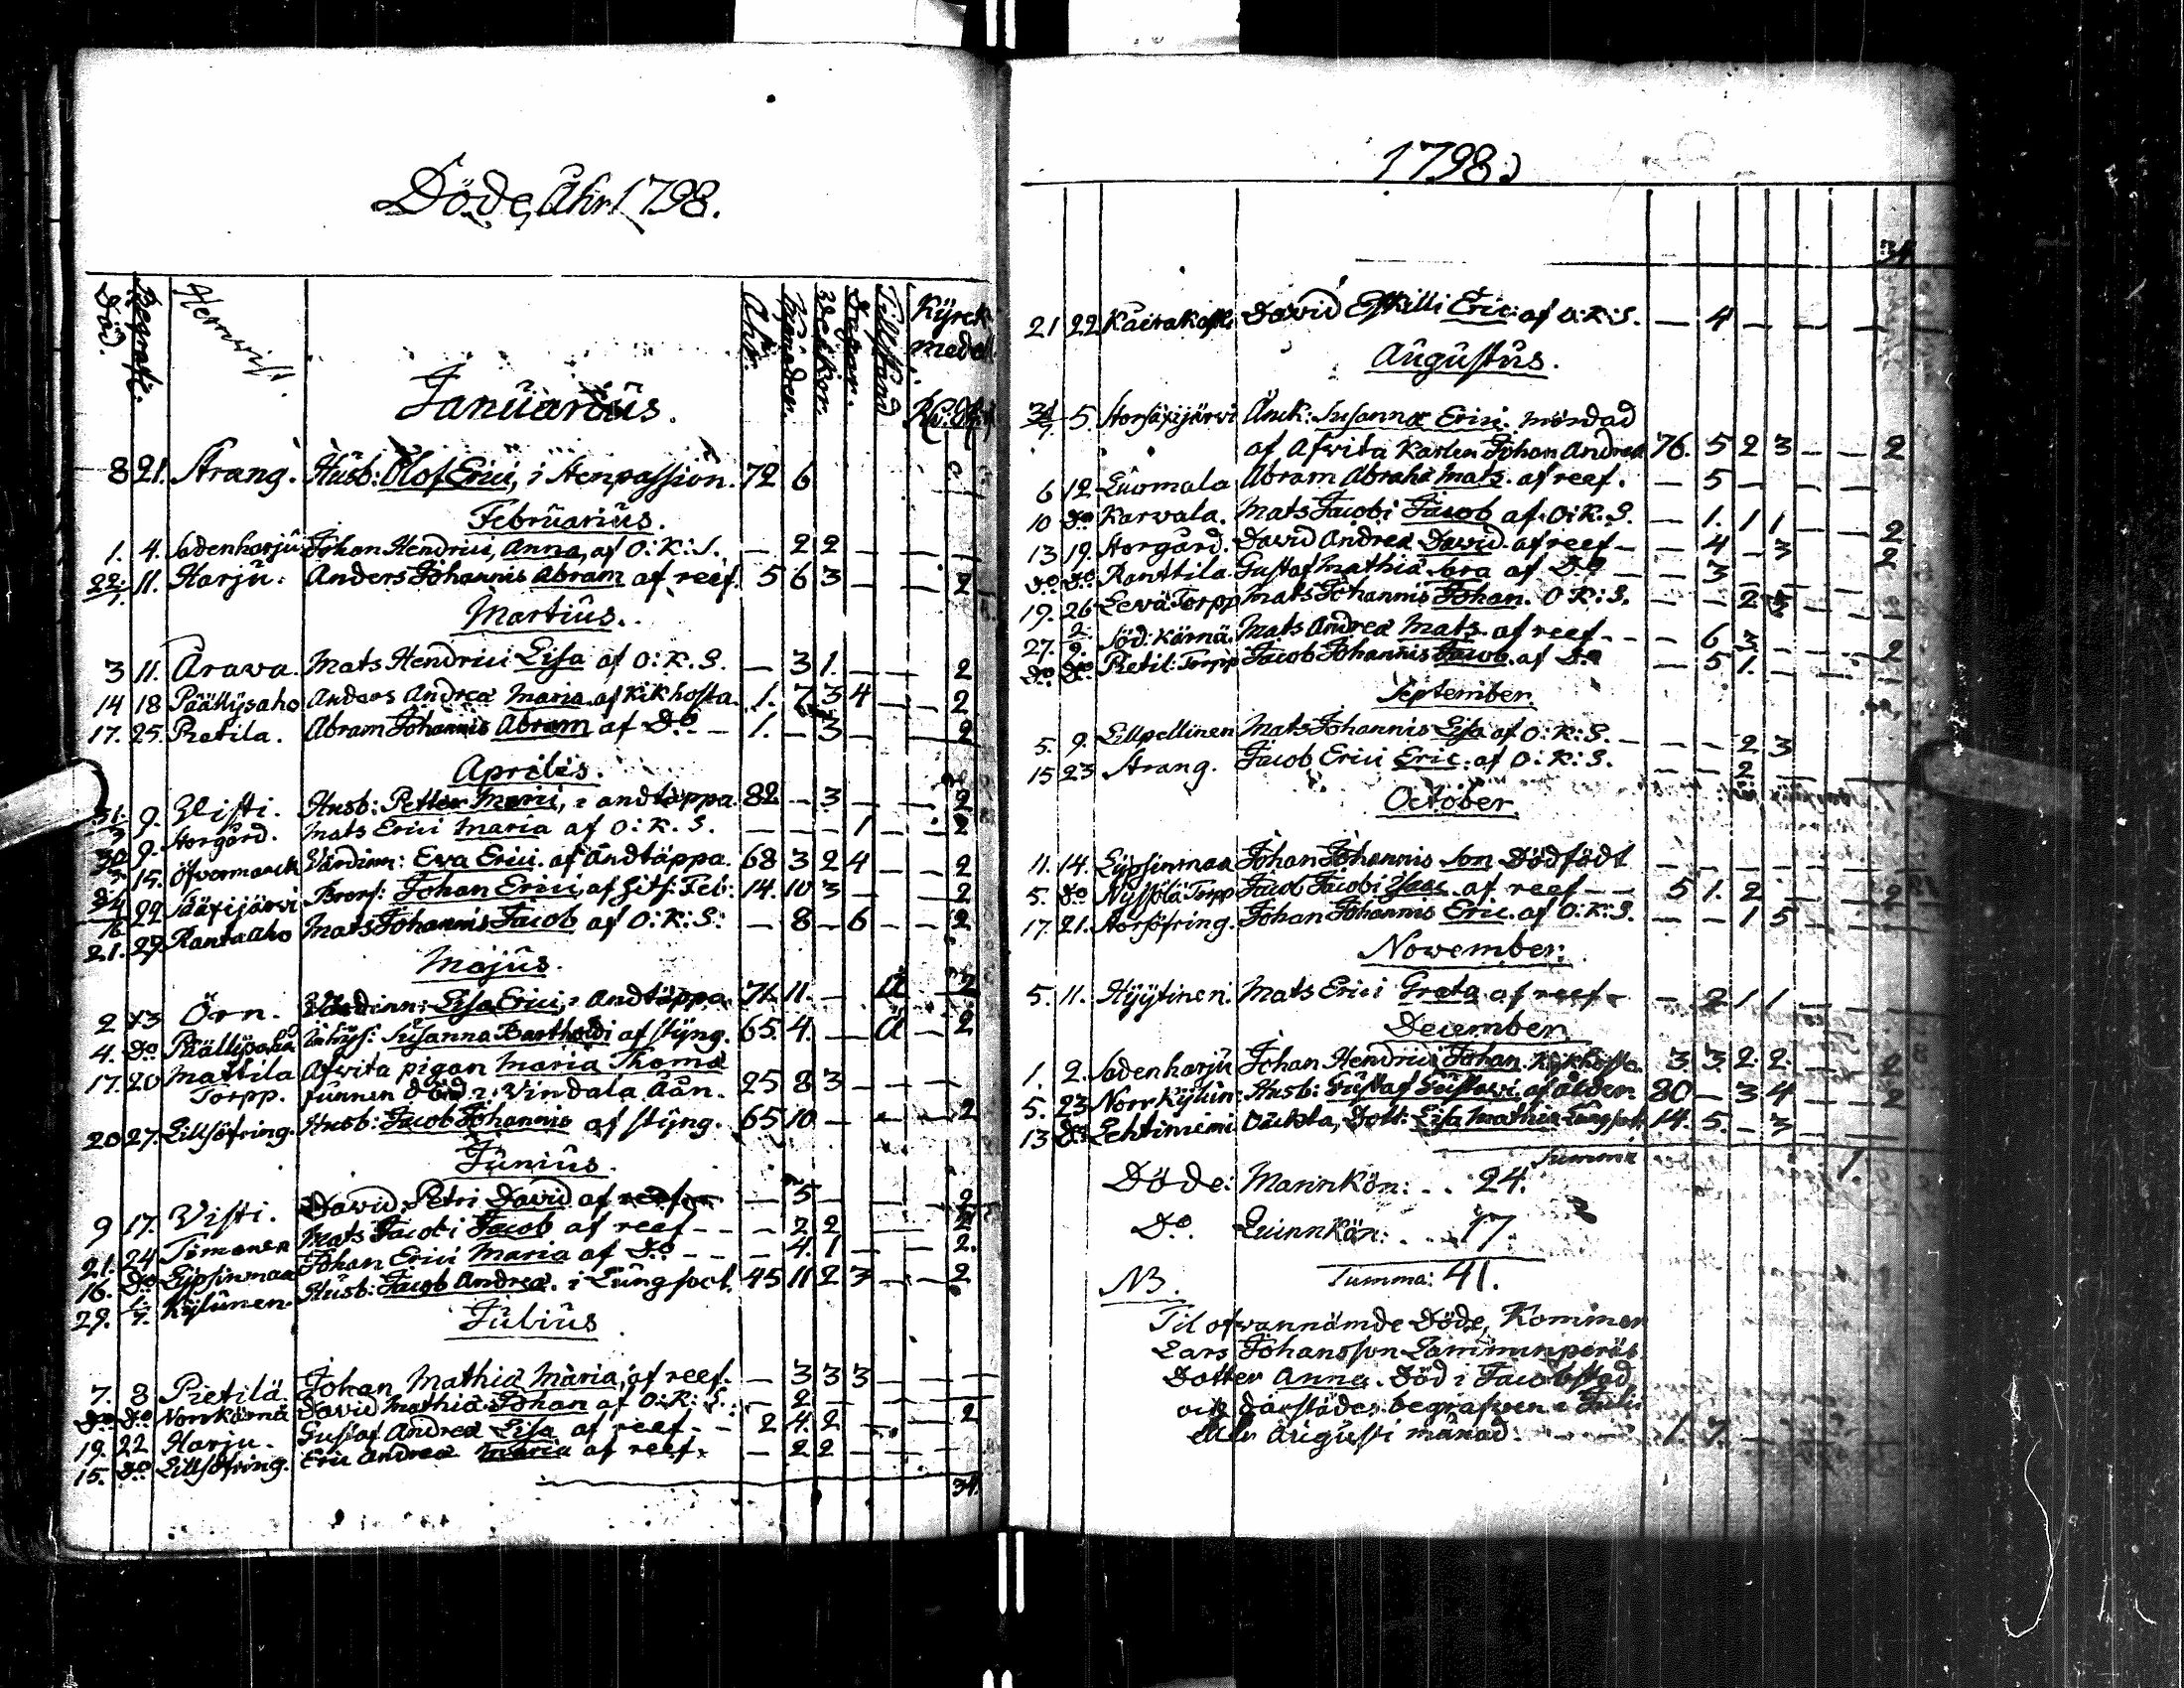 Döde, Åhr 1798.
Död. Begrafn. Hemvist. Åhr. Månader. Veckor. Dagar. Tillstånd Kyrck medel
Januarius.
8 21. Strang. Husb: Olof Erici, i Stenpassion. 72 6
Februarius.
1. 4. Sadenharju Johan Hendrici, Anna, af O: K: S. — 2 2 — — —
22/1. 11. Harju. Anders Johannis Abram af reef. 5 6 3 — — 2
Martius.
3 11. Arawa. Mats Hendrici Lisa af O: K. S. — 3 1. — — 2
14 18 Päällysaho Anders Andreæ Maria af Kikhosta. 1. 7 3 4 — — 2
17. 25. Pietila. Abram Johannis Abram af Do — 1. — 3 — — 2
Aprilis.
31/3 9. Visti. Husb: Petter Marci, i andtäppa. 82 — 3 — — 2
9. Storgård. Mats Erici Maria af O: K. S. — — — 1 — — 2
30/3 15. Öfvermarck Värdinn: Eva Erici. af andtäppa. 68 3 2 4 — 2
22 Sääxijärvi Brors: Johan Erici, af Hits: Feb: 14. 10 3 — — 2
21. 29 Ranta aho Mats Johannis Jacob af O: K: S: — 8 — 6 — — 2
Majus.
2 13 Örn. Värdinn: Lisa Erici, i Andtäppa. 71. 11. — Ä — 2
4. Do Susanna Bartholdi af styng. 65. 4. — Ä — 2
17. 20 Mattila Afvita pigan Maria Thomæ
Torpp. funnen död i Vindala Åån. 25 8 3 — — —
20 27. Lillsöfring. Husb: Jacob Johannis af styng. 65 10 — — — 2
Junius.
9 17. Visti. David Petri David af reef — 5 — — 2
21. 24 Timonen Mats Jacobi Jacob af reef — — — 2 2 — 2
16. Do Lypsinmaa Johan Erici Maria af Do — — — 4. 1 — — 2.
29. 1/7. Kylänen. Husb: Jacob Andreæ. i Lungsoct. 45 11 2 3 — — 2
Julius
7. 8 Pietilä. Johan Mathiæ Maria, af reef. — 3 3 3 — — —
Do Do Norrkärnä David Mathiæ Johan af O: K: S. — 2 — — —
19. 22 Harju. Gustaf Andreæ Lisa af reef. — 2 4. 2 — — 2
15. Do Lillsöfring. Eric Andreæ Maria af reef. — 2 2 — —
34.
1798.
34
21 22 Kairakoski David Eskilli Eric: af O: K: S. — 4 — — — —
Augustus.
31/7. 5. Storsäxijärvi Änck: Susanna Erici. mördad
af Afvita Karlen Johan Andreæ 76. 5 2 3 — — 2
6 12 Luomala Abram Abrahæ Mats. af reef. — 5 — — —
10 Do Karvala. Mats Jacobi Jacob af O: K. S. — 1. 1 1 — 2
13 19. Storgård. David Andreæ David af reef — — 4 — 3 2
Do Do Ranttila Gustaf Mathiæ Sara af Do — — 3 — —
19. 26 Leva Torpp Mats Johannis Johan. O: K: S. — — 2 —
27. 2/9. Söd: Kärnä. Mats Andreæ Mats. af reef — — — 6 3 — — 2
Do Do Pietil: Torpp Jacob Johannis Jacob. af Do — 5 1. — —
September.
5. 9. Lillpellinen Mats Johannis Lisa af O: K: S. — — — 2 3
15 23 Strang. Jacob Erici Eric. af O: K: S. — — 2 —
October.
11. 14. Lypsinmaa Johan Johannis Son Dödfödt — — — —
5. Do Nyssölä Torpp Jacob Jacobi af reef — — 5 1. 2 — — 2
17. 21. Storsöfring. Johan Johannis Eric. af O: K: S. — — 1 5 — —
November.
5. 11. Hyytinen. Mats Erici Greta af reef — — 2 1 1 —
December
1. 2. Sadenharju Johan Hendrici Johan. Kikhosta. 3. 3. 2. 2. — 2
5. 23 Norr Kylän: Husb: Gustaf Gustavi. af ålder. 80 — 3 4 — — 2
13 Do Lehtiniemi Dott: Lisa Mathiæ Lungsot. 14. 5. — 3 —
Summa 1.
Döde: Mannkön: . . 24.
Do. Quinnkön: . . 17.
Summa: 41.
NB.
Til ofvannämde Döde, Kommer
Lars Johansson Lamminperäs
Dotter Anna. Död i Jacobstad
ock därstädes begrafven i Julii
eller Augusti månad. — — — 1. 7. —